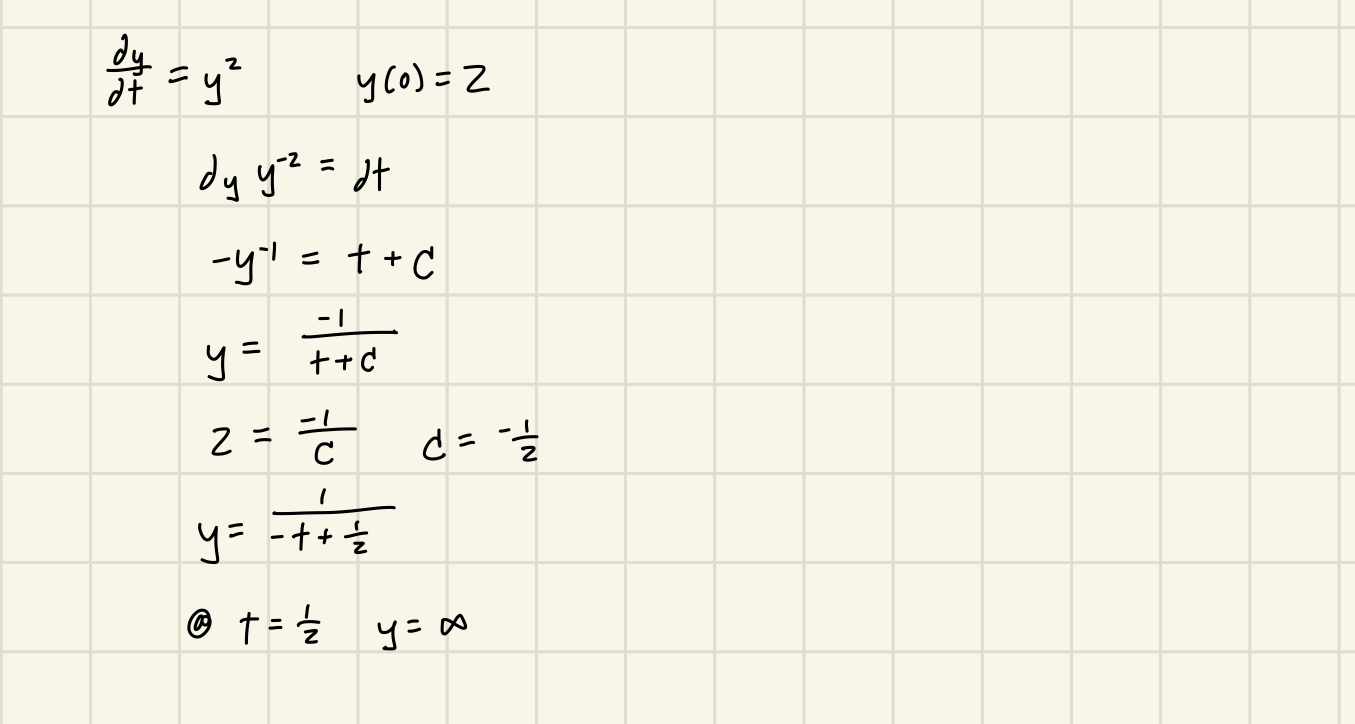 dy/dt = y² y(0) = 2
dy y⁻² = dt
-y⁻¹ = t + C
y = -1/(t+C)
2 = -1/C C = -1/2
y = 1/(-t + 1/2)
@ t = 1/2 y = ∞